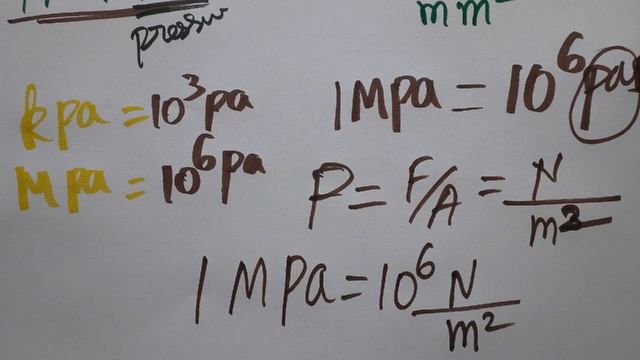 pressu
mm²
kpa = 10³pa
1Mpa = 10⁶ pas
Mpa = 10⁶pa
P = F/A = N/m²
1 MPa = 10⁶ N/m²